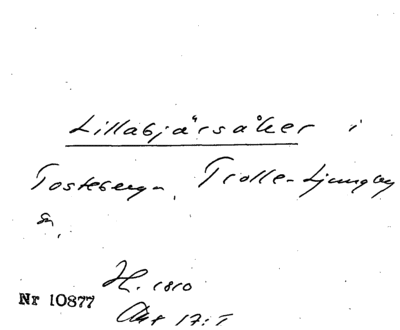 Lillabjärsåker i
Tosteberga, Trolle-Ljungby
sn.
H. 1810
Nr 10877
Akt 17:I